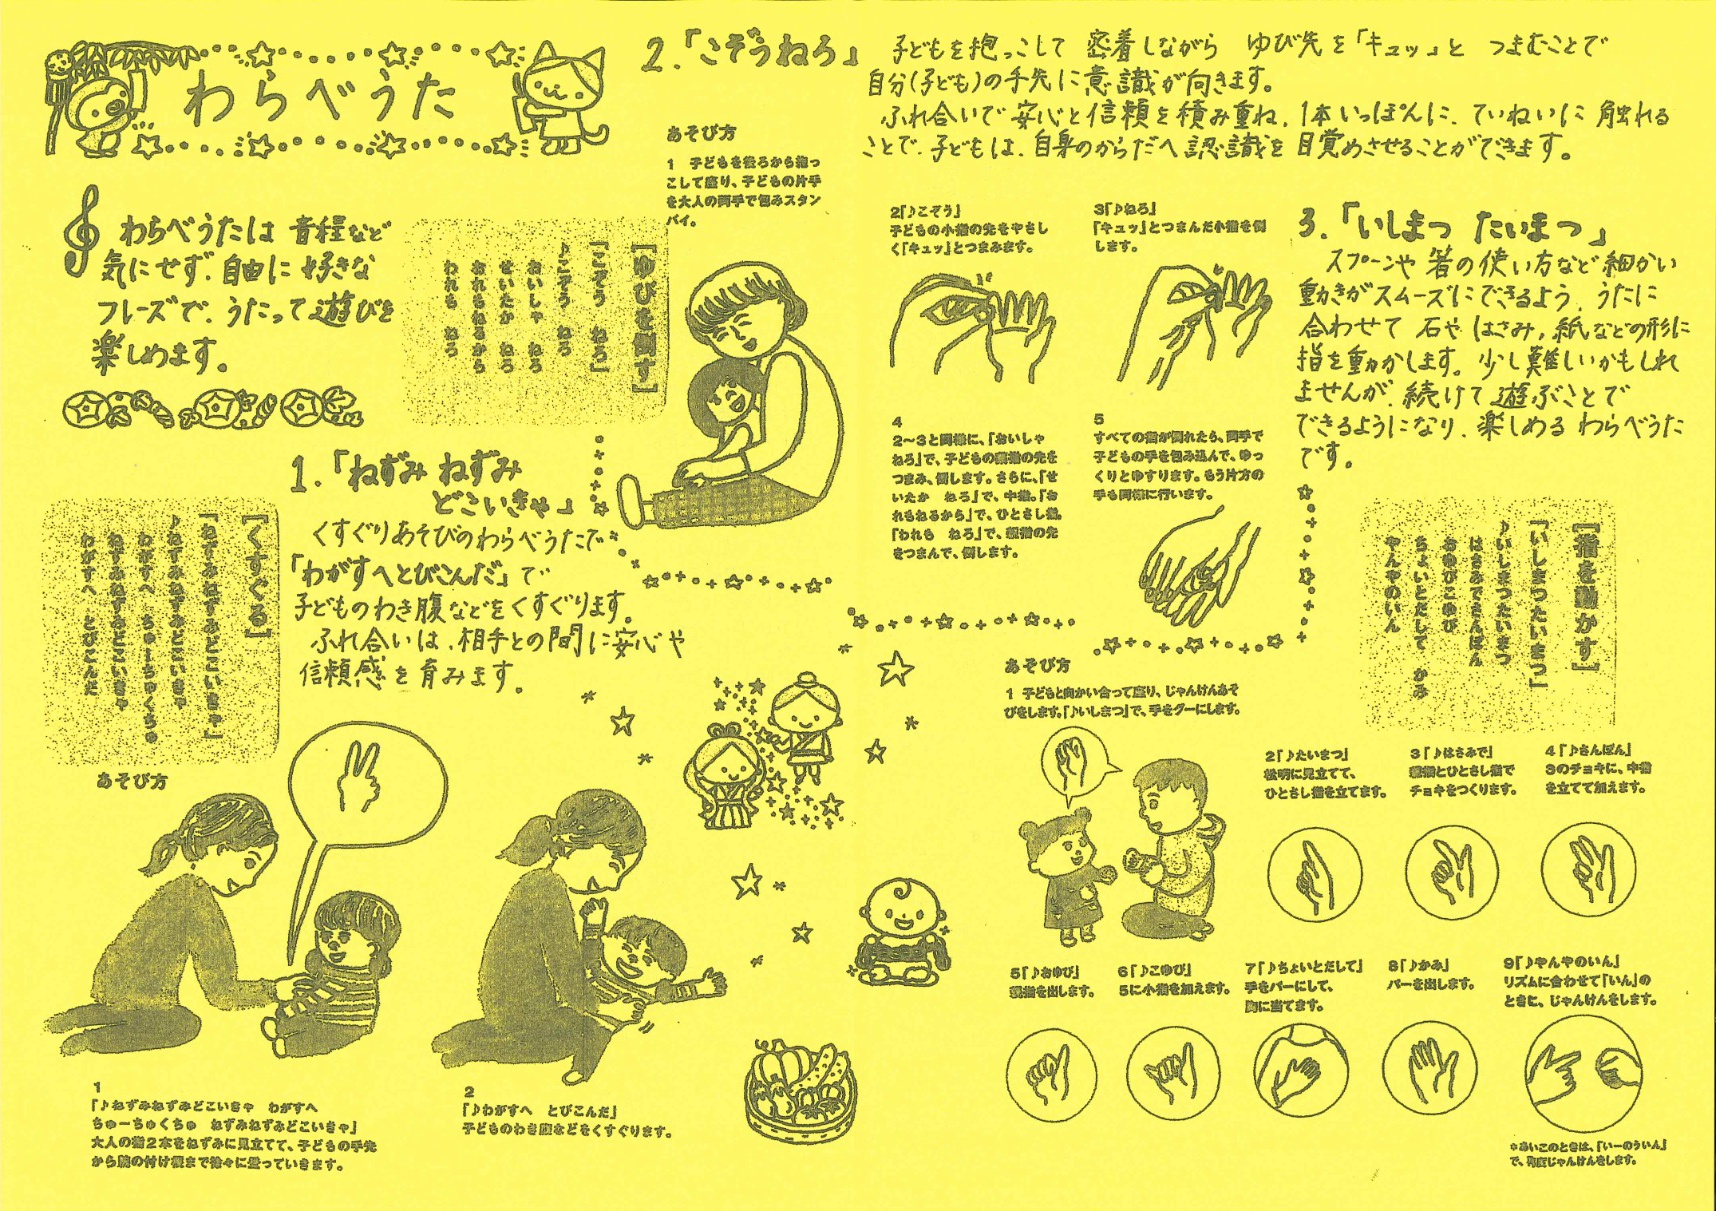 わらべうた
わらべうたは 音程など
気にせず、自由に 好きな
フレーズで、うたって 遊びを
楽しめます。
1.「ねずみ ねずみ
どこいきゃ」
くすぐりあそびのわらべうたで、
「わがすへとびこんだ」で
子どものわき腹などをくすぐります。
ふれ合いは、相手との間に安心や
信頼感を育みます。
[くすぐる]
「ねずみねずみどこいきゃ」
♪ねずみねずみどこいきゃ
わがすへ ちゅーちゅくちゅ
ねずみねずみどこいきゃ
わがすへ とびこんだ
あそび方
1
「♪ねずみねずみどこいきゃ わがすへ
ちゅーちゅくちゅ ねずみねずみどこいきゃ」
大人の指2本をねずみに見立てて、子どもの手先
から腕の付け根まで徐々に登っていきます。
2
「♪わがすへ とびこんだ」
子どものわき腹などをくすぐります。
2.「こぞうねろ」
子どもを抱っこして 密着しながら ゆび先を「キュッ」と つまむことで
自分(子ども)の手先に意識が向きます。
ふれ合いで 安心と信頼を積み重ね、1本いっぽんに、ていねいに 触れる
ことで、子どもは、自身のからだへ認識を 目覚めさせることができます。
あそび方
1 子どもを後ろから抱っ
こして座り、子どもの片手
を大人の両手で包みスタン
バイ。
[ゆびを倒す]
「こぞう ねろ」
♪こぞう ねろ
おいしゃ ねろ
せいたか ねろ
おれもねるから
われも ねろ
2「♪こぞう」
子どもの小指の先をやさし
く「キュッ」とつまみます。
3「♪ねろ」
「キュッ」とつまんだ小指を倒
します。
4
2～3と同様に、「おいしゃ
ねろ」で、子どもの薬指の先を
つまみ、倒します。さらに、「せ
いたか ねろ」で、中指。「お
れもねるから」で、ひとさし指。
「われも ねろ」で、親指の先
をつまんで、倒します。
5
すべての指が倒れたら、両手で
子どもの手を包み込んで、ゆっ
くりとゆすります。もう片方の
手も同様に行います。
3.「いしまつ たいまつ」
スプーンや 箸の使い方など細かい
動きがスムーズにできるよう、うたに
合わせて 石や はさみ,紙などの形に
指を動かします。少し難しいかもしれ
ませんが、続けて遊ぶことで
できるようになり、楽しめる わらべうた
です。
[指を動かす]
「いしまつたいまつ」
♪いしまつたいまつ
はさみでさんぼん
おゆびこゆび
ちょいとだして かみ
やんやのいん
あそび方
1 子どもと向かい合って座り、じゃんけんあそ
びをします。「♪いしまつ」で、手をグーにします。
2「♪たいまつ」
松明に見立てて、
ひとさし指を立てます。
3「♪はさみで」
親指とひとさし指で
チョキをつくります。
4「♪さんぼん」
3のチョキに、中指
を立てて加えます。
5「♪おゆび」
親指を出します。
6「♪こゆび」
5に小指を加えます。
7「♪ちょいとだして」
手をパーにして、
胸に当てます。
8「♪かみ」
パーを出します。
9「♪やんやのいん」
リズムに合わせて「いん」の
ときに、じゃんけんをします。
*あいこのときは、「いーのういん」
で、再度じゃんけんをします。